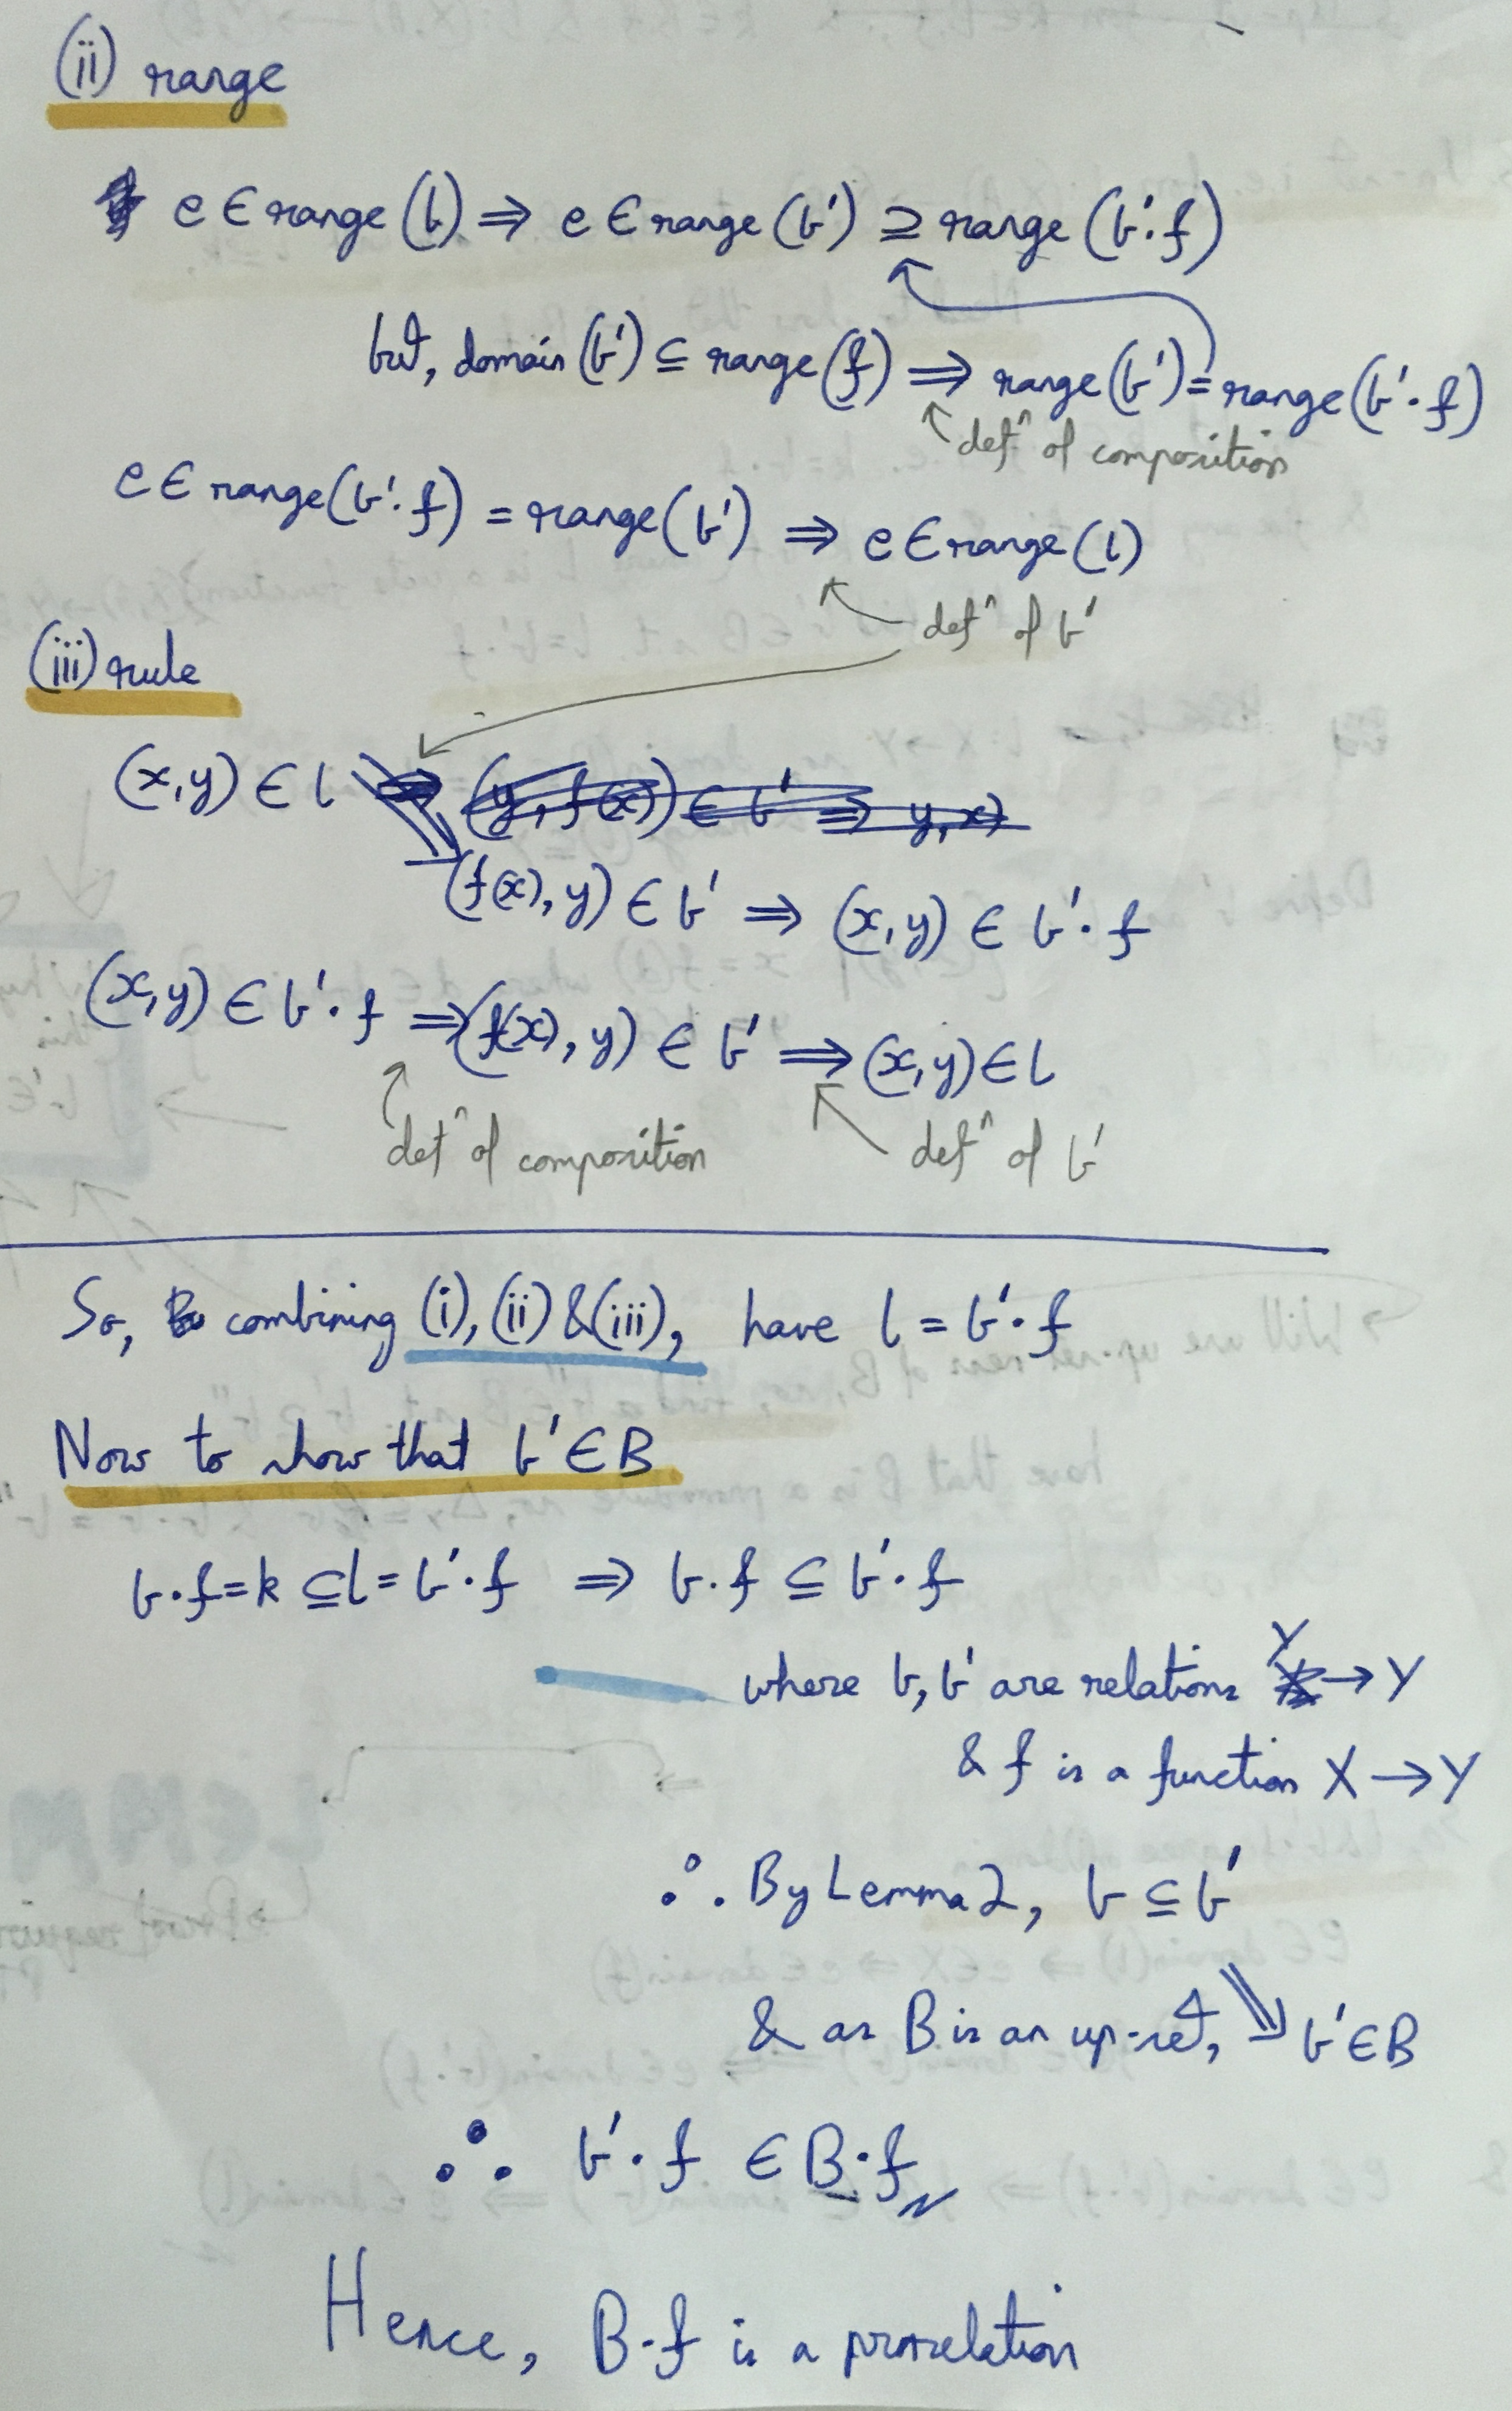 (ii) range
e ∈ range (l) ⇒ e ∈ range (b') ⊇ range (b'·f)
but, domain (b') ⊆ range (f) ⇒ range (b') = range (b'·f)
defⁿ of composition
e ∈ range (b'·f) = range (b') ⇒ e ∈ range (l)
defⁿ of b'
(iii) rule
(x,y) ∈ l ⇒ (y, f(x)) ∈ b' ⇒ y,x)
(f(x), y) ∈ b' ⇒ (x,y) ∈ b'·f
(x,y) ∈ b'·f ⇒ (f(x), y) ∈ b' ⇒ (x,y) ∈ l
defⁿ of composition defⁿ of b'
So, combining (i), (ii) & (iii), have l = b'·f
Now to show that b' ∈ B
b·f = k ⊆ l = b'·f ⇒ b·f ⊆ b'·f
where b, b' are relations Y → Y
& f is a function X → Y
∴ By Lemma 2, b ⊆ b'
& as B is an up-set, ⇒ b' ∈ B
∴ b'·f ∈ B·f
Hence, B·f is a prorelation